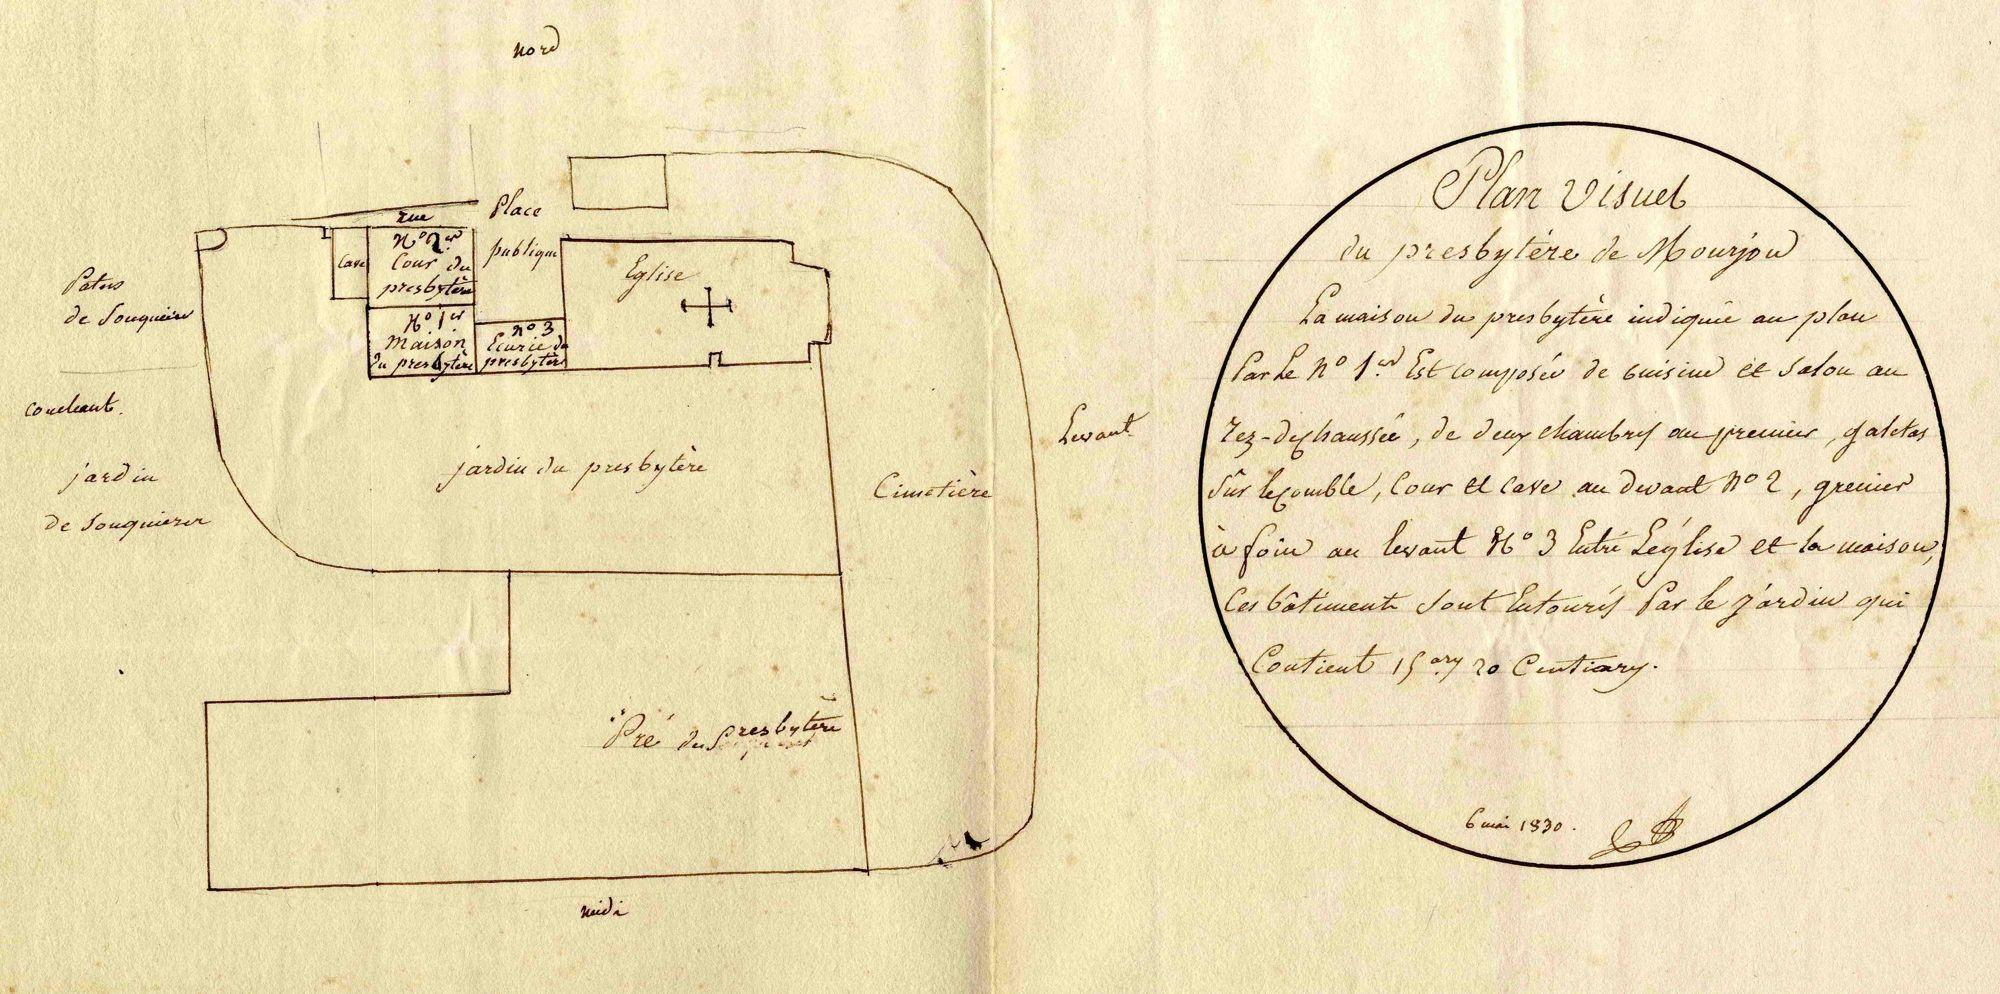 nord
rue
Place
publique
N° 2
Cour du
presbytère
Cave
N° 1er
Maison
du presbytère
n° 3
Ecurie du
presbytère
Eglise
Patus
de Souquière
couchant.
jardin
de Souquierer
jardin du presbytère
Cimetière
Levant
Pré du Presbytère
midi
Plan Visuel
du presbytère de Mourjou
La maison du presbytère indiquée au plan
Par Le N° 1er Est composée de cuisine et salon au
rez-dechaussée, de deux chambres au premier, galetas
sûr lecomble, Cour et cave au devant N° 2, grenier
à foin au levant N° 3 Entre L'église et la maison,
Ces bâtiments sont Entourés Par le jardin qui
Contient 15 ares 20 Centiares.
6 mai 1830.